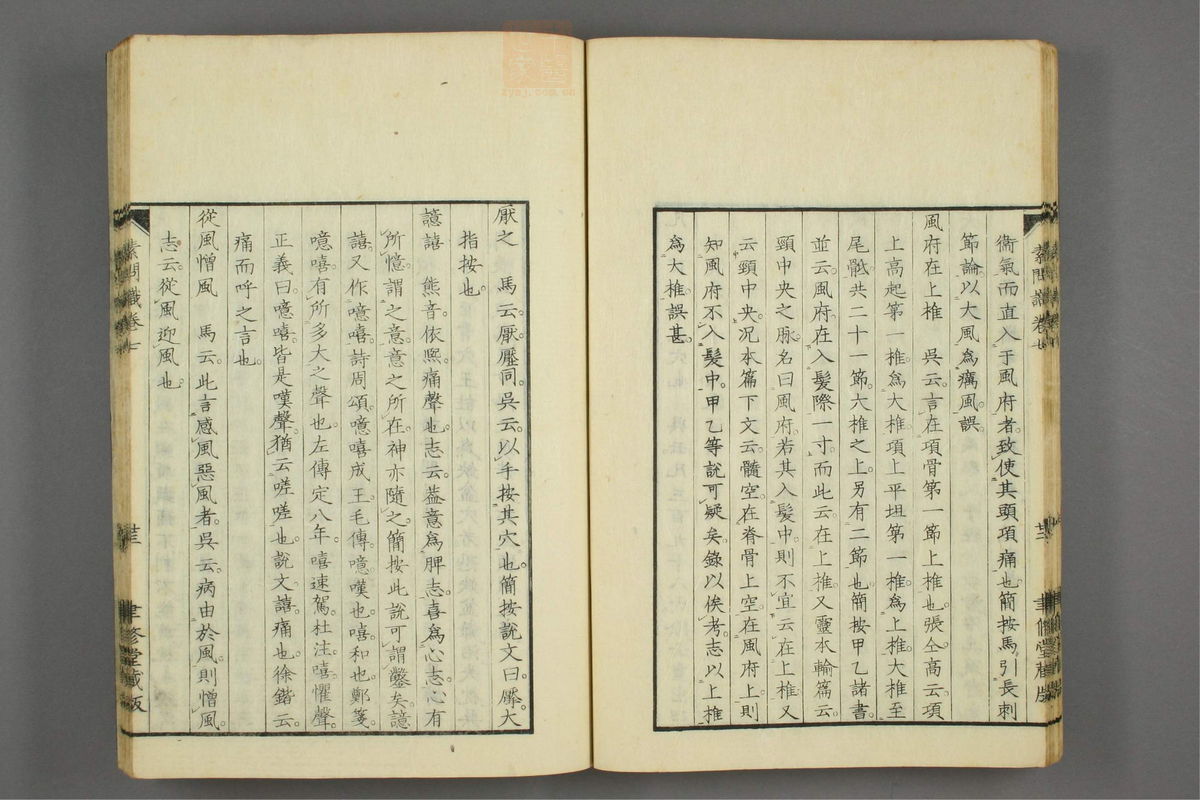 衞氣而直入于風府者致使其頭項痛也簡按馬引長刺
節論以大風為癘風誤
風府在上椎　吳云言在項骨第一節上椎也張仝高云項
上高起第一椎為大椎項上平坦第一椎為上椎大椎至
尾骶共二十一節六椎之上另有二節也簡按甲乙諸書
並云風府在入髮際一寸而此云在上椎又靈本輸篇云
頸中央之脉名曰風府若其入髮中則不宜云在上椎又
云頸中央況本篇下文云髓空在脊骨上空在風府上則
知風府不入髮中甲乙等說可疑矣錄以俟考志以上椎
為大椎誤甚
厭之　馬云厭壓同吳云以手按其穴也簡按說文曰厴大
指按也
譩譆　熊音依熙痛聲也志云葢意為脾志喜為心志心有
所憶謂之意意之所在神亦隨之簡按此說可謂鑿矣譩
譆又作噫嘻詩周頌噫嘻成王毛傳噫嘆也嘻和也鄭箋
噫嘻有所多大之聲也左傳定八年嘻速駕杜注嘻懼聲
正義曰噫嘻皆是嘆聲猶云嗟嗟也說文譆痛也徐鍇云
痛而呼之言也
從風憎風　馬云此言感風惡風者吳云病由於風則憎風
志云從風迎風也
素問識卷七
聿修堂藏版